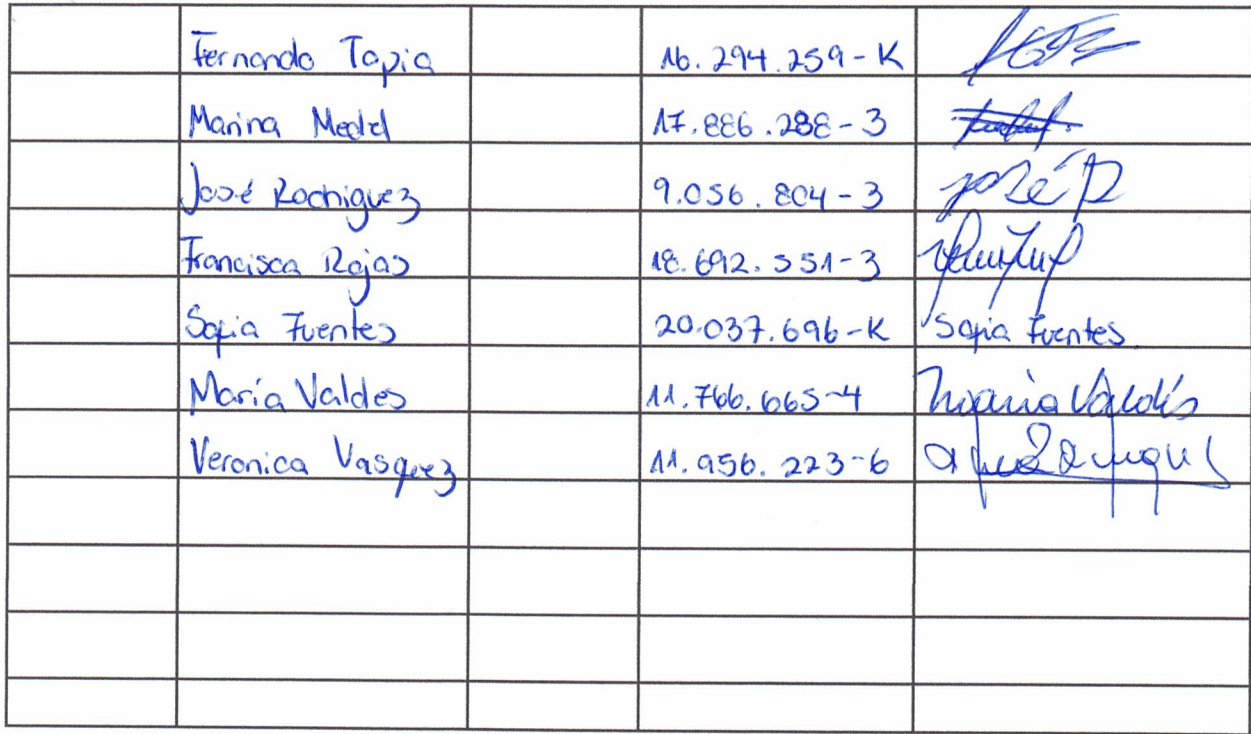 Fernando Tapia 16.294.259-K
Marina Medel 17.886.288-3
José Rodriguez 9.056.804-3 José R
Francisca Rojas 18.692.551-3
Sofia Fuentes 20.037.696-K Sofia Fuentes
María Valdes 11.766.665-4 Maria Valdés
Veronica Vasquez 11.956.223-6